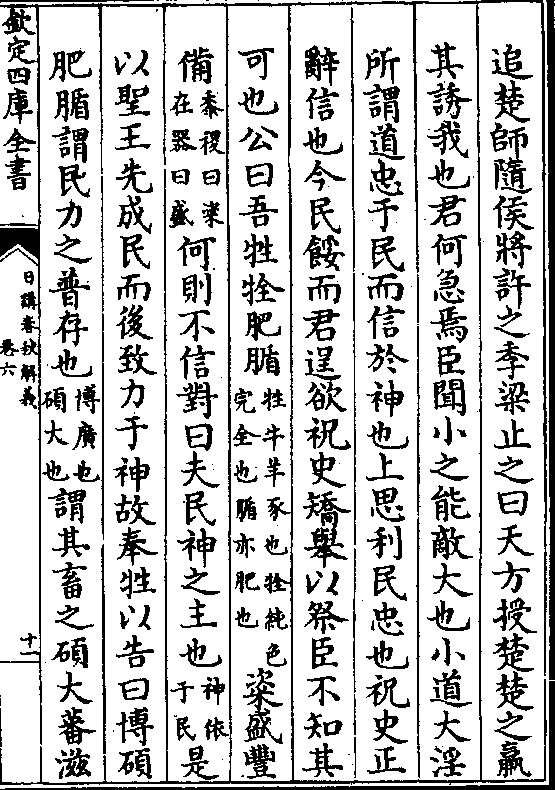 追楚師隨侯將許之季梁止之曰天方授楚楚之羸
其誘我也君何急焉臣聞小之能敵大也小道大淫
所謂道忠于民而信於神也上思利民忠也祝史正
辭信也今民餒而君逞欲祝史矯舉以祭臣不知其
可也公曰吾牲牷肥腯牲牛羊豕也牷純色完全也腯亦肥也粢盛豐
備黍稷曰粢在器曰盛何則不信對曰夫民神之主也神依于民是
以聖王先成民而後致力于神故奉牲以告曰博碩
肥腯謂民力之普存也博廣也碩大也謂其畜之碩大蕃滋
欽定四庫全書
日講春秋解義
卷六
十一